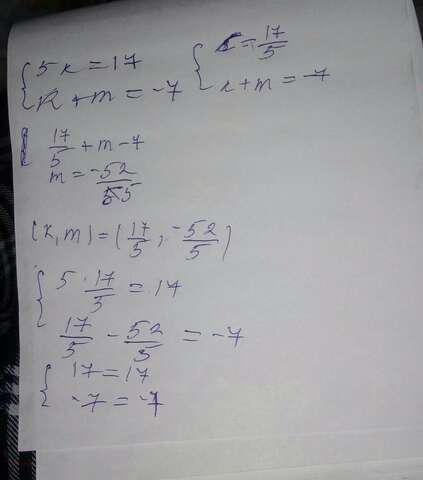 { 5k = 17 { k = 17/5
{ k + m = -7 { k + m = -7
17/5 + m - 7
m = -52/5
(k, m) = (17/5, -52/5)
{ 5 · 17/5 = 17
17/5 - 52/5 = -7
{ 17 = 17
-7 = -7